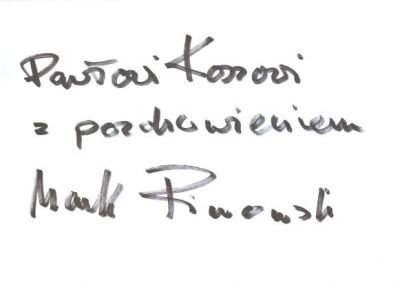 Pawłowi Kossowi
z pozdrowieniem
Marek Piwowski